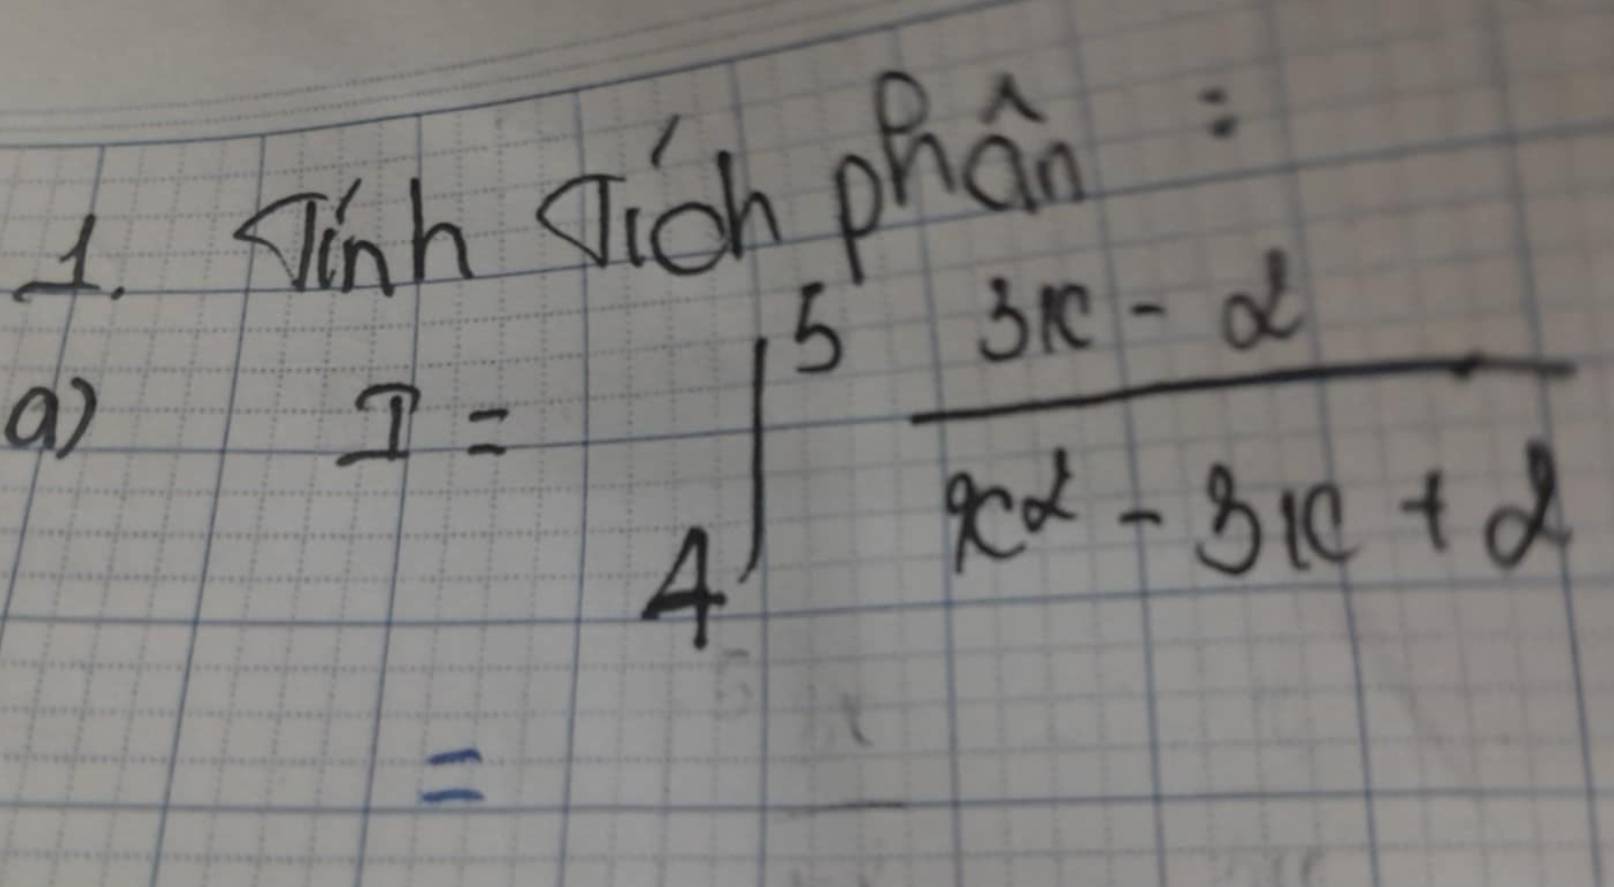 1. Tính Tích phân :
a) I = ∫₄⁵ (3x - 2)/(x² - 3x + 2)
=